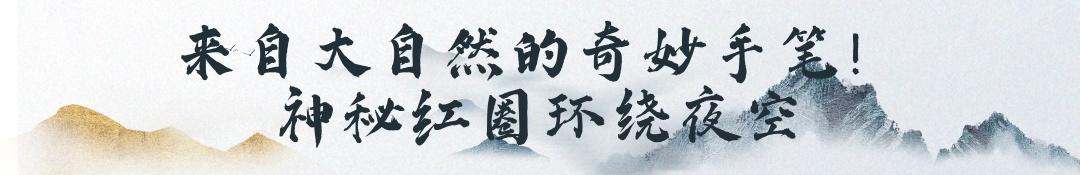 来自大自然的奇妙手笔！
神秘红圈环绕夜空